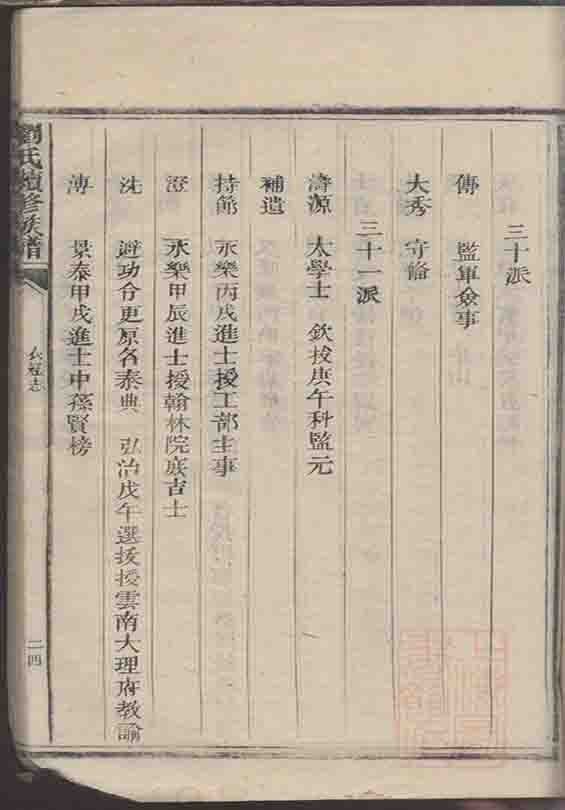 三十派
傳　監軍僉事
大秀　守備
三十一派
濤源　太學士　欽拔庚午科監元
補遺
持節　永樂丙戌進士授工部主事
澄　永樂甲辰進士授翰林院庶吉士
沈　避功令更原名泰典　弘治戊午選拔授雲南大理府教諭
溥　景泰甲戌進士中孫賢榜
劉氏續修族譜
二四